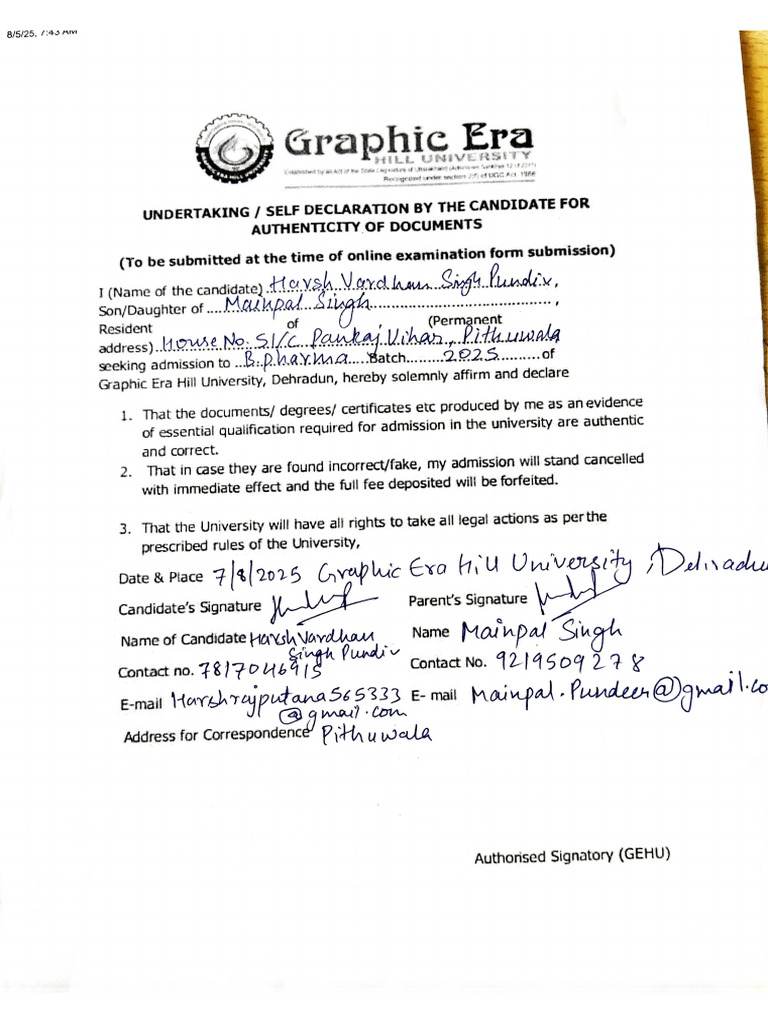 8/5/25, 7:43 AM
Graphic Era
HILL UNIVERSITY
Established by an Act of the State Legislature of Uttarakhand (Adhiniyam Sankhya 12 of 2011)
Recognized under section 2(f) of UGC Act, 1956
UNDERTAKING / SELF DECLARATION BY THE CANDIDATE FOR
AUTHENTICITY OF DOCUMENTS
(To be submitted at the time of online examination form submission)
I (Name of the candidate) Harsh Vardhan Singh Pundir,
Son/Daughter of ....Mainpal Singh............................................ ,
Resident of (Permanent
address) House No. 51/C Pankaj Vihar, Pithuwala
seeking admission to ...B.pharma.... Batch.........2025..........of
Graphic Era Hill University, Dehradun, hereby solemnly affirm and declare
1. That the documents/ degrees/ certificates etc produced by me as an evidence
of essential qualification required for admission in the university are authentic
and correct.
2. That in case they are found incorrect/fake, my admission will stand cancelled
with immediate effect and the full fee deposited will be forfeited.
3. That the University will have all rights to take all legal actions as per the
prescribed rules of the University,
Date & Place 7/8/2025 Graphic Era Hill University, Dehradu
Candidate's Signature Parent's Signature
Name of Candidate Harsh Vardhan Name Mainpal Singh
Singh Pundir
Contact no. 7817046915 Contact No. 9219509278
E-mail Harshrajputana565333 E- mail Mainpal.Pundeer@gmail.co
@gmail.com
Address for Correspondence Pithuwala
Authorised Signatory (GEHU)